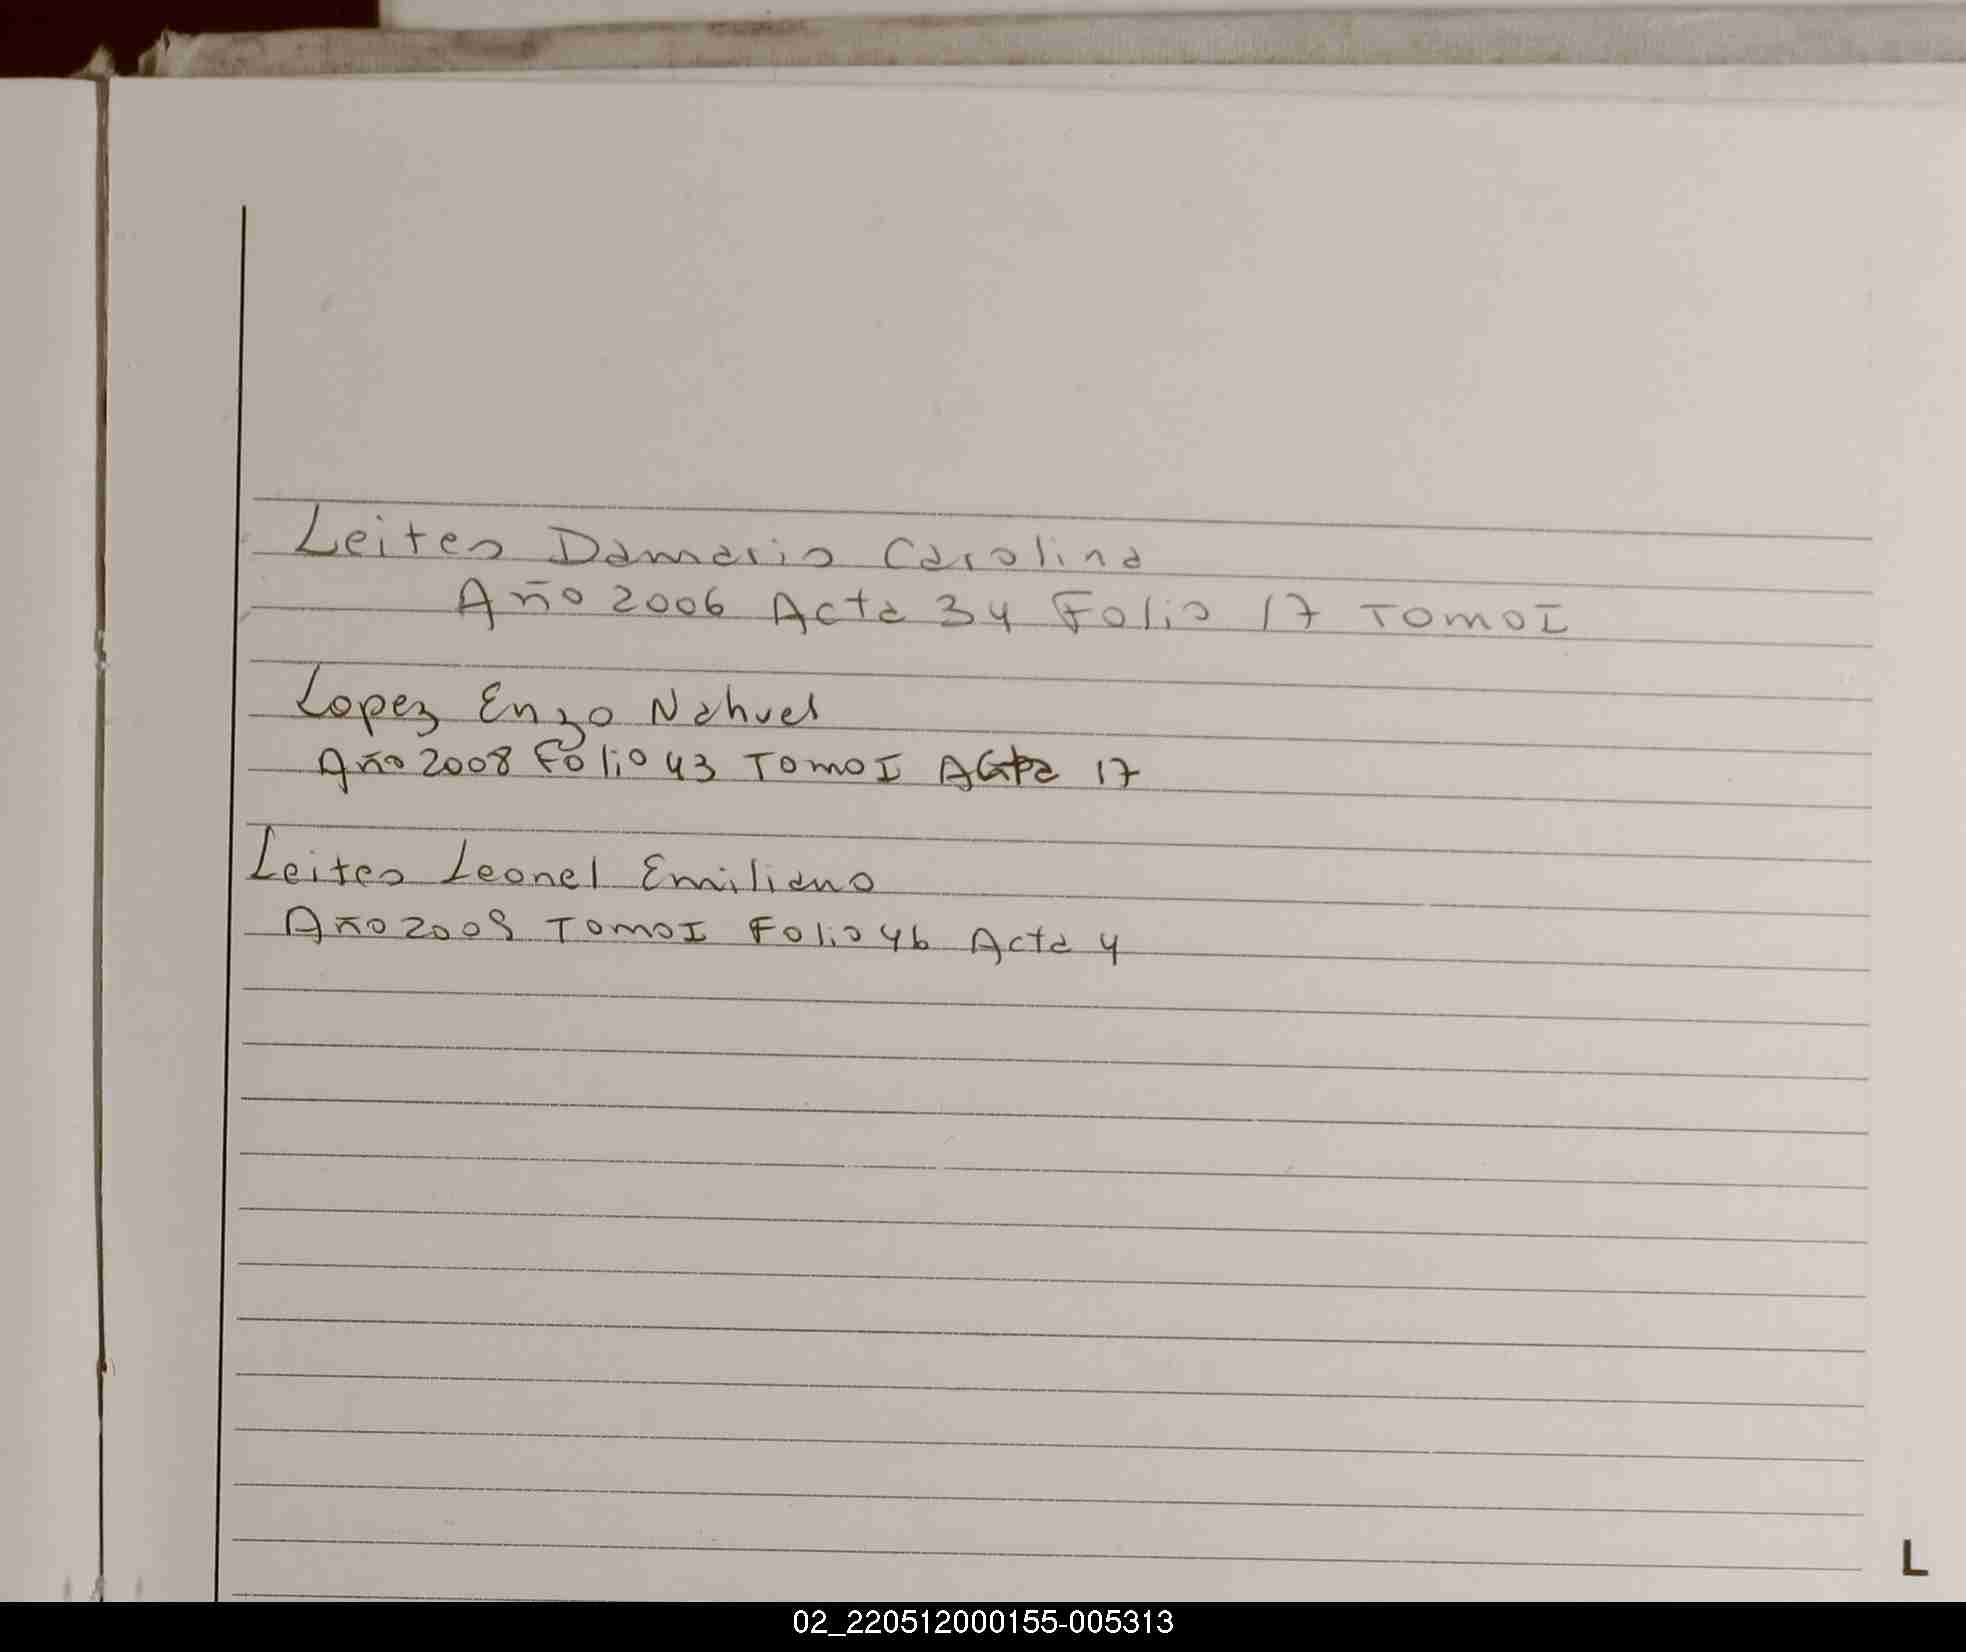 Leites Damaris Carolina
Año 2006 Acta 34 Folio 17 Tomo I
Lopez Enzo Nahuel
Año 2008 Folio 43 Tomo I Acta 17
Leites Leonel Emiliano
Año 2009 Tomo I Folio 46 Acta 4
L
02_220512000155-005313